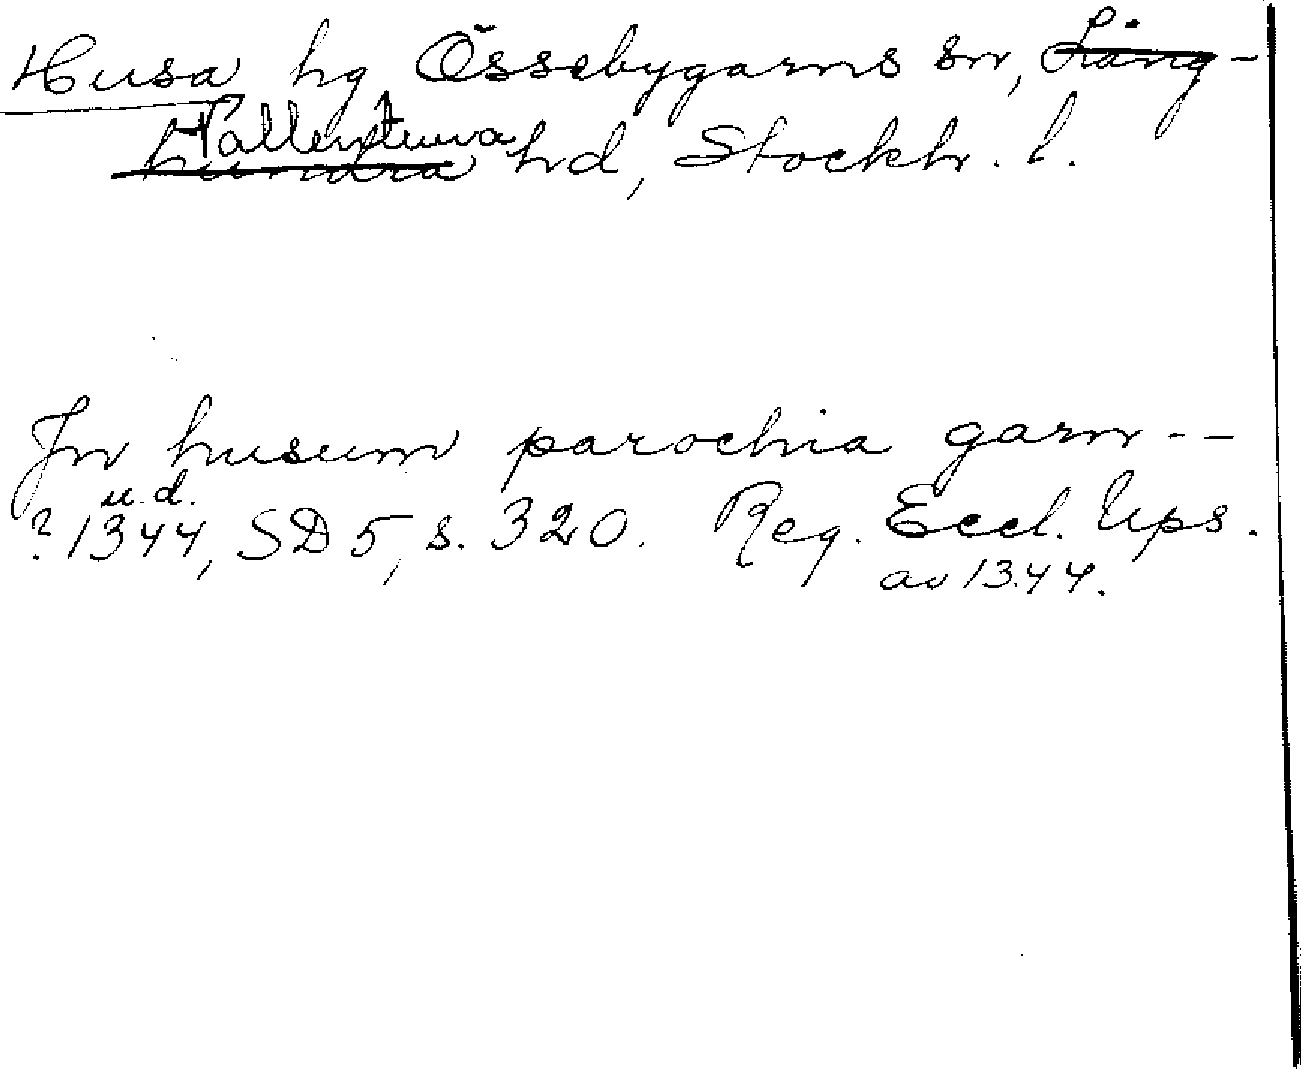 Husa hg Össebygarns sn, Lång-
Vallentuna
hundra hd, Stockh. l.
In husum parochia garn --
u. d.
? 1344, SD 5, s. 320. Reg. Eccl. Ups.
av 1344.